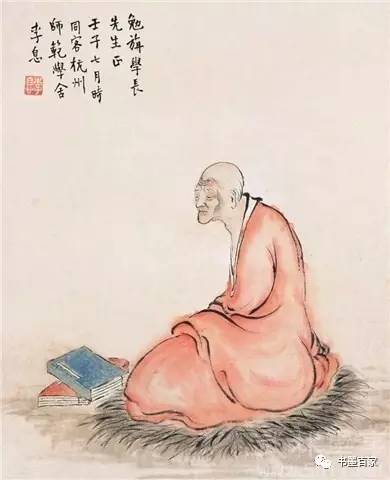 勉旃學長
先生正
壬子七月時
同客杭州
師範學舍
李息
书墨百家